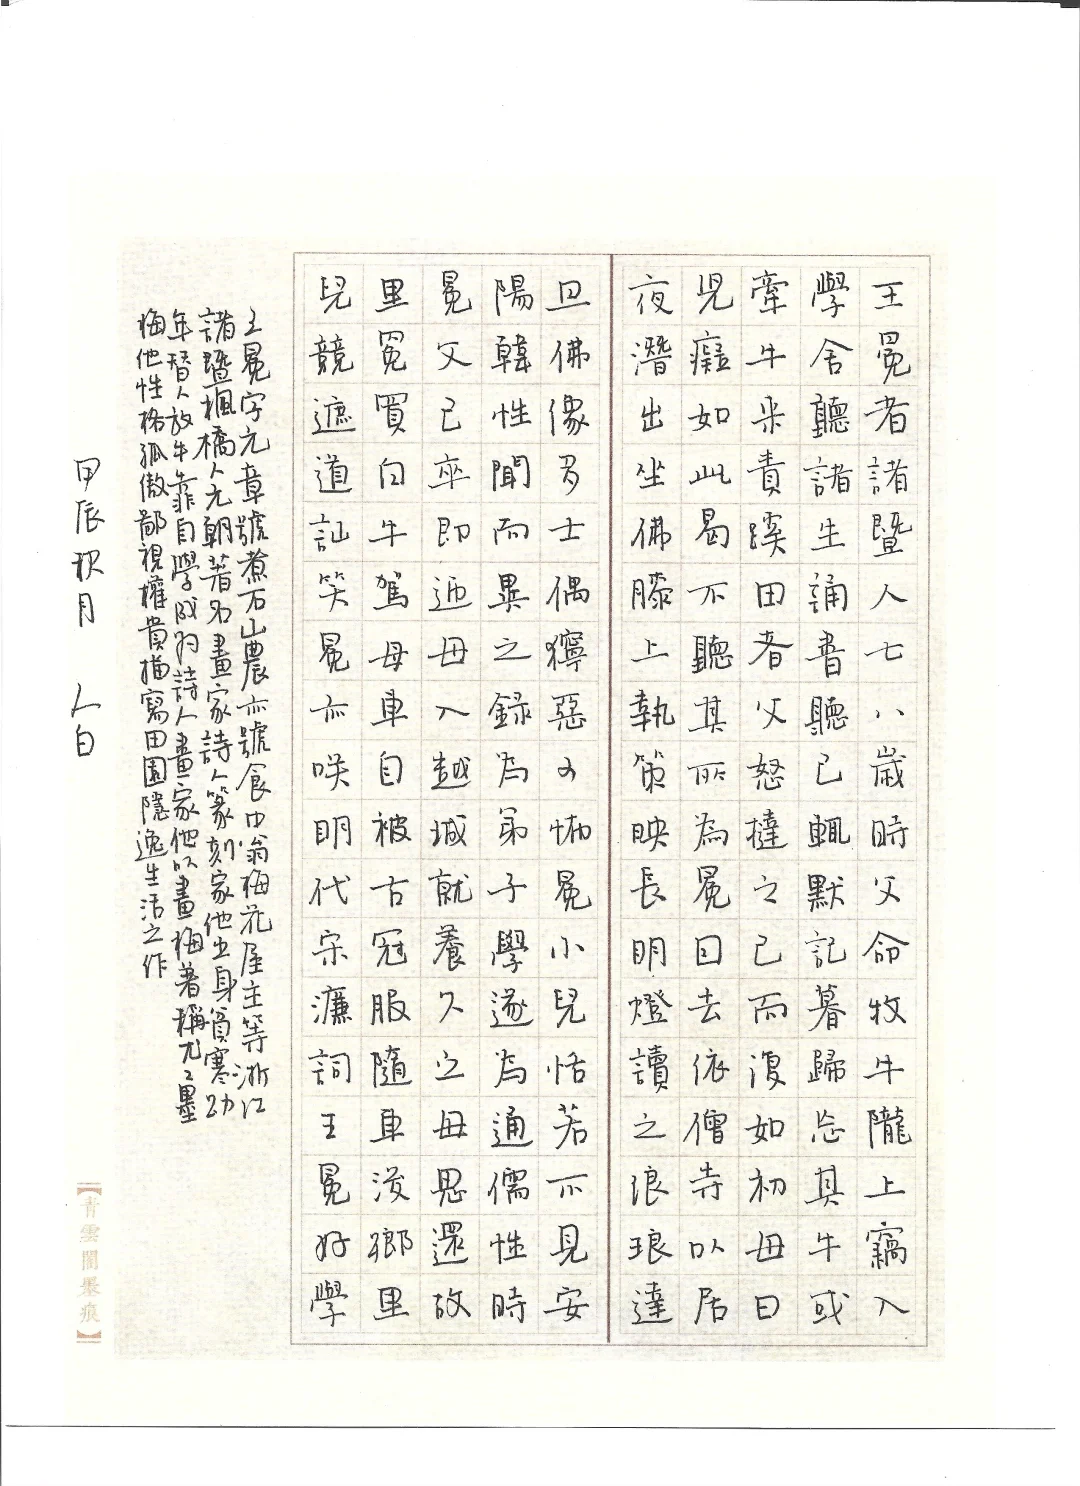 王冕者諸暨人七八歲時父命牧牛隴上竊入
學舍聽諸生誦書聽已輒默記暮歸忘其牛或
牽牛来責蹊田者父怒撻之已而復如初母曰
児癡如此曷不聽其所為冕因去依僧寺以居
夜潛出坐佛膝上執策映長明燈讀之浪琅達
旦佛像多土偶獰惡可怖冕小兒恬若不見安
陽韓性聞而異之録為弟子學遂為通儒性時
冕父已卒即迎母入越城就養久之母思還故
里冕買白牛駕母車自被古冠服隨車後鄉里
兒競遮道訕笑冕亦咲明代宋濂詞王冕好學
王冕字元章號煮石山農亦號食中翁梅花屋主等浙江
諸暨楓橋人元朝著名畫家詩人篆刻家他出身貧寒幼
年替人放牛靠自學成为詩人畫家他以畫梅著稱尤工墨
梅他性格孤傲鄙視權貴描寫田園隱逸生活之作
甲辰秋月 人白
【青雲閣墨痕】